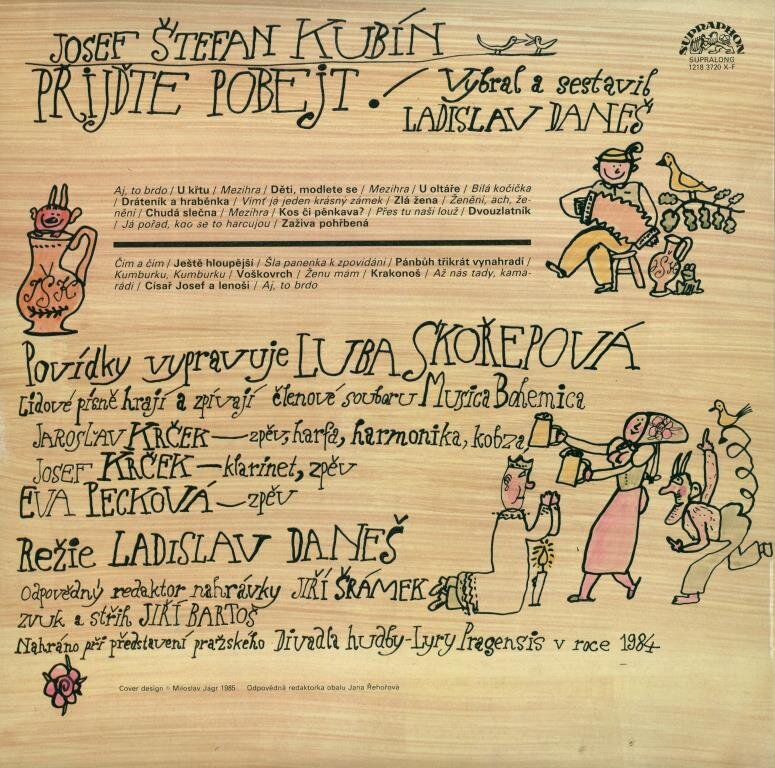 JOSEF ŠTEFAN KUBÍN
PŘIJĎTE POBEJT!
Vybral a sestavil
LADISLAV DANEŠ
SUPRAPHON
SUPRALONG
1218 3720 X-F
Aj, to brdo / U křtu / Mezihra / Děti, modlete se / Mezihra / U oltáře / Bílá kočička
/ Dráteník a hraběnka / Vímť já jeden krásný zámek / Zlá žena / Ženění, ach, že-
nění / Chudá slečna / Mezihra / Kos či pěnkava? / Přes tu naši louž / Dvouzlatník
/ Já pořad, kao se to harcujou / Zaživa pohřbená
Čím a čím / Ještě hloupější / Šla panenka k zpovídání / Pánbůh třikrát vynahradí /
Kumburku, Kumburku / Voškovrch / Ženu mám / Krakonoš / Až nás tady, kama-
rádi / Císař Josef a lenoši / Aj, to brdo
JŠK
JŠK
Povídky vypravuje LUBA SKOŘEPOVÁ
Lidové písně hrají a zpívají členové souboru Musica Bohemica
JAROSLAV KRČEK — zpěv, harfa, harmonika, kobza
JOSEF KRČEK — klarinet, zpěv
EVA PECKOVÁ — zpěv
Režie LADISLAV DANEŠ
Odpovědný redaktor nahrávky JIŘÍ ŠRÁMEK
zvuk a střih JIŘÍ BARTOŠ
Nahráno při představení pražského Divadla hudby-Lyry Pragensis v roce 1984
Cover design © Miloslav Jágr 1985 Odpovědná redaktorka obalu Jana Řehořová